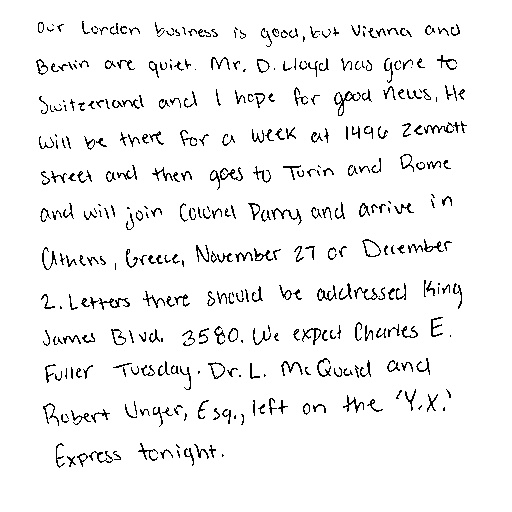 Our London business is good, but Vienna and
Berlin are quiet. Mr. D. Lloyd has gone to
Switzerland and I hope for good news. He
will be there for a week at 1496 Zermott
Street and then goes to Turin and Rome
and will join Colonel Parry and arrive in
Athens, Greece, November 27 or December
2. Letters there should be addressed King
James Blvd. 3580. We expect Charles E.
Fuller Tuesday. Dr. L. McQuaid and
Robert Unger, Esq., left on the 'Y.X.'
Express tonight.